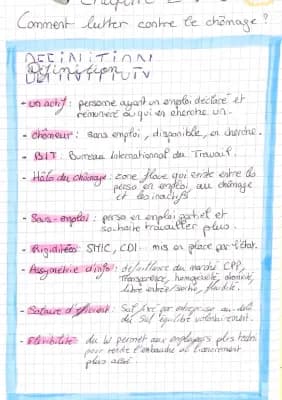 Comment lutter contre le chômage ?
DEFINITION
- un actif : personne ayant un emploi déclaré et
rémunéré ou qui en cherche un.
- chômeur : sans emploi, disponible, en cherche.
- BIT : Bureau International du Travail.
- Halo du chômage : zone floue qui existe entre les
perso en emploi, au chômage
et les inactifs
- Sous-emploi : perso en emploi partiel et
souhaite travailler plus.
- Rigidités : SMIC, CDI - mis en place par l'état.
- Assymétrie d'info : défaillance du marché CPP,
Transparence, homogénéité, atomicité,
libre entrée/sortie, fluidité.
- Salaire d'efficient : Sal fixé par entreprise au-delà
du Sal équilibre volontairement.
- Flexibilité du W permet aux employeurs
pour rendre l'embauche ou licenciement
plus aisé.